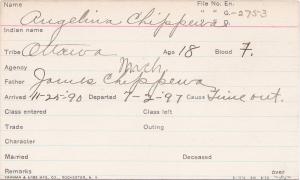 Name File No. En.
Angelina Chippewa " " 2-2753
Indian name
Tribe Ottawa Age 18 Blood F.
Agency Mich.
Father James Chippewa
Arrived 11-25-90 Departed 7-2-97 Cause Time out.
Class entered Class left
Trade Outing
Character
Married Deceased
Remarks over